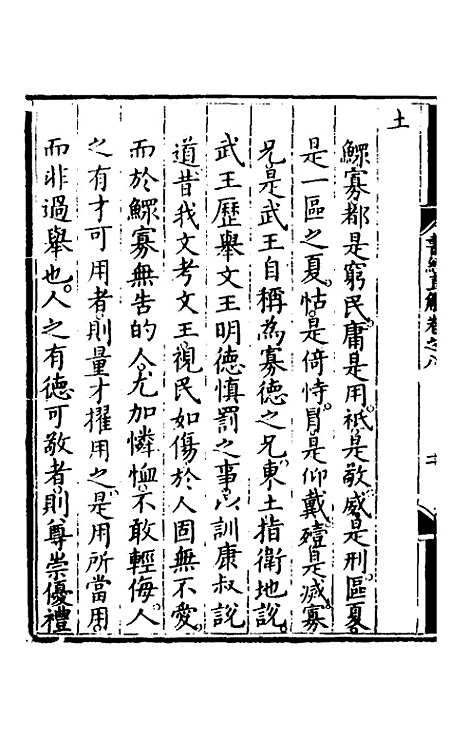 土
鰥寡都是窮民庸是用祗是敬威是刑區夏
是一區之夏怙是倚恃冒是仰戴殪是滅寡
兄是武王自稱為寡德之兄東土指衛地說
武王歷舉文王明德慎罰之事以訓康叔說
道昔我文考文王視民如傷於人固無不愛
而於鰥寡無告的人尤加憐恤不敢輕侮人
之有才可用者則量才擢用之是用所當用
而非過舉也人之有德可敬者則尊崇優禮
書經直解卷之八